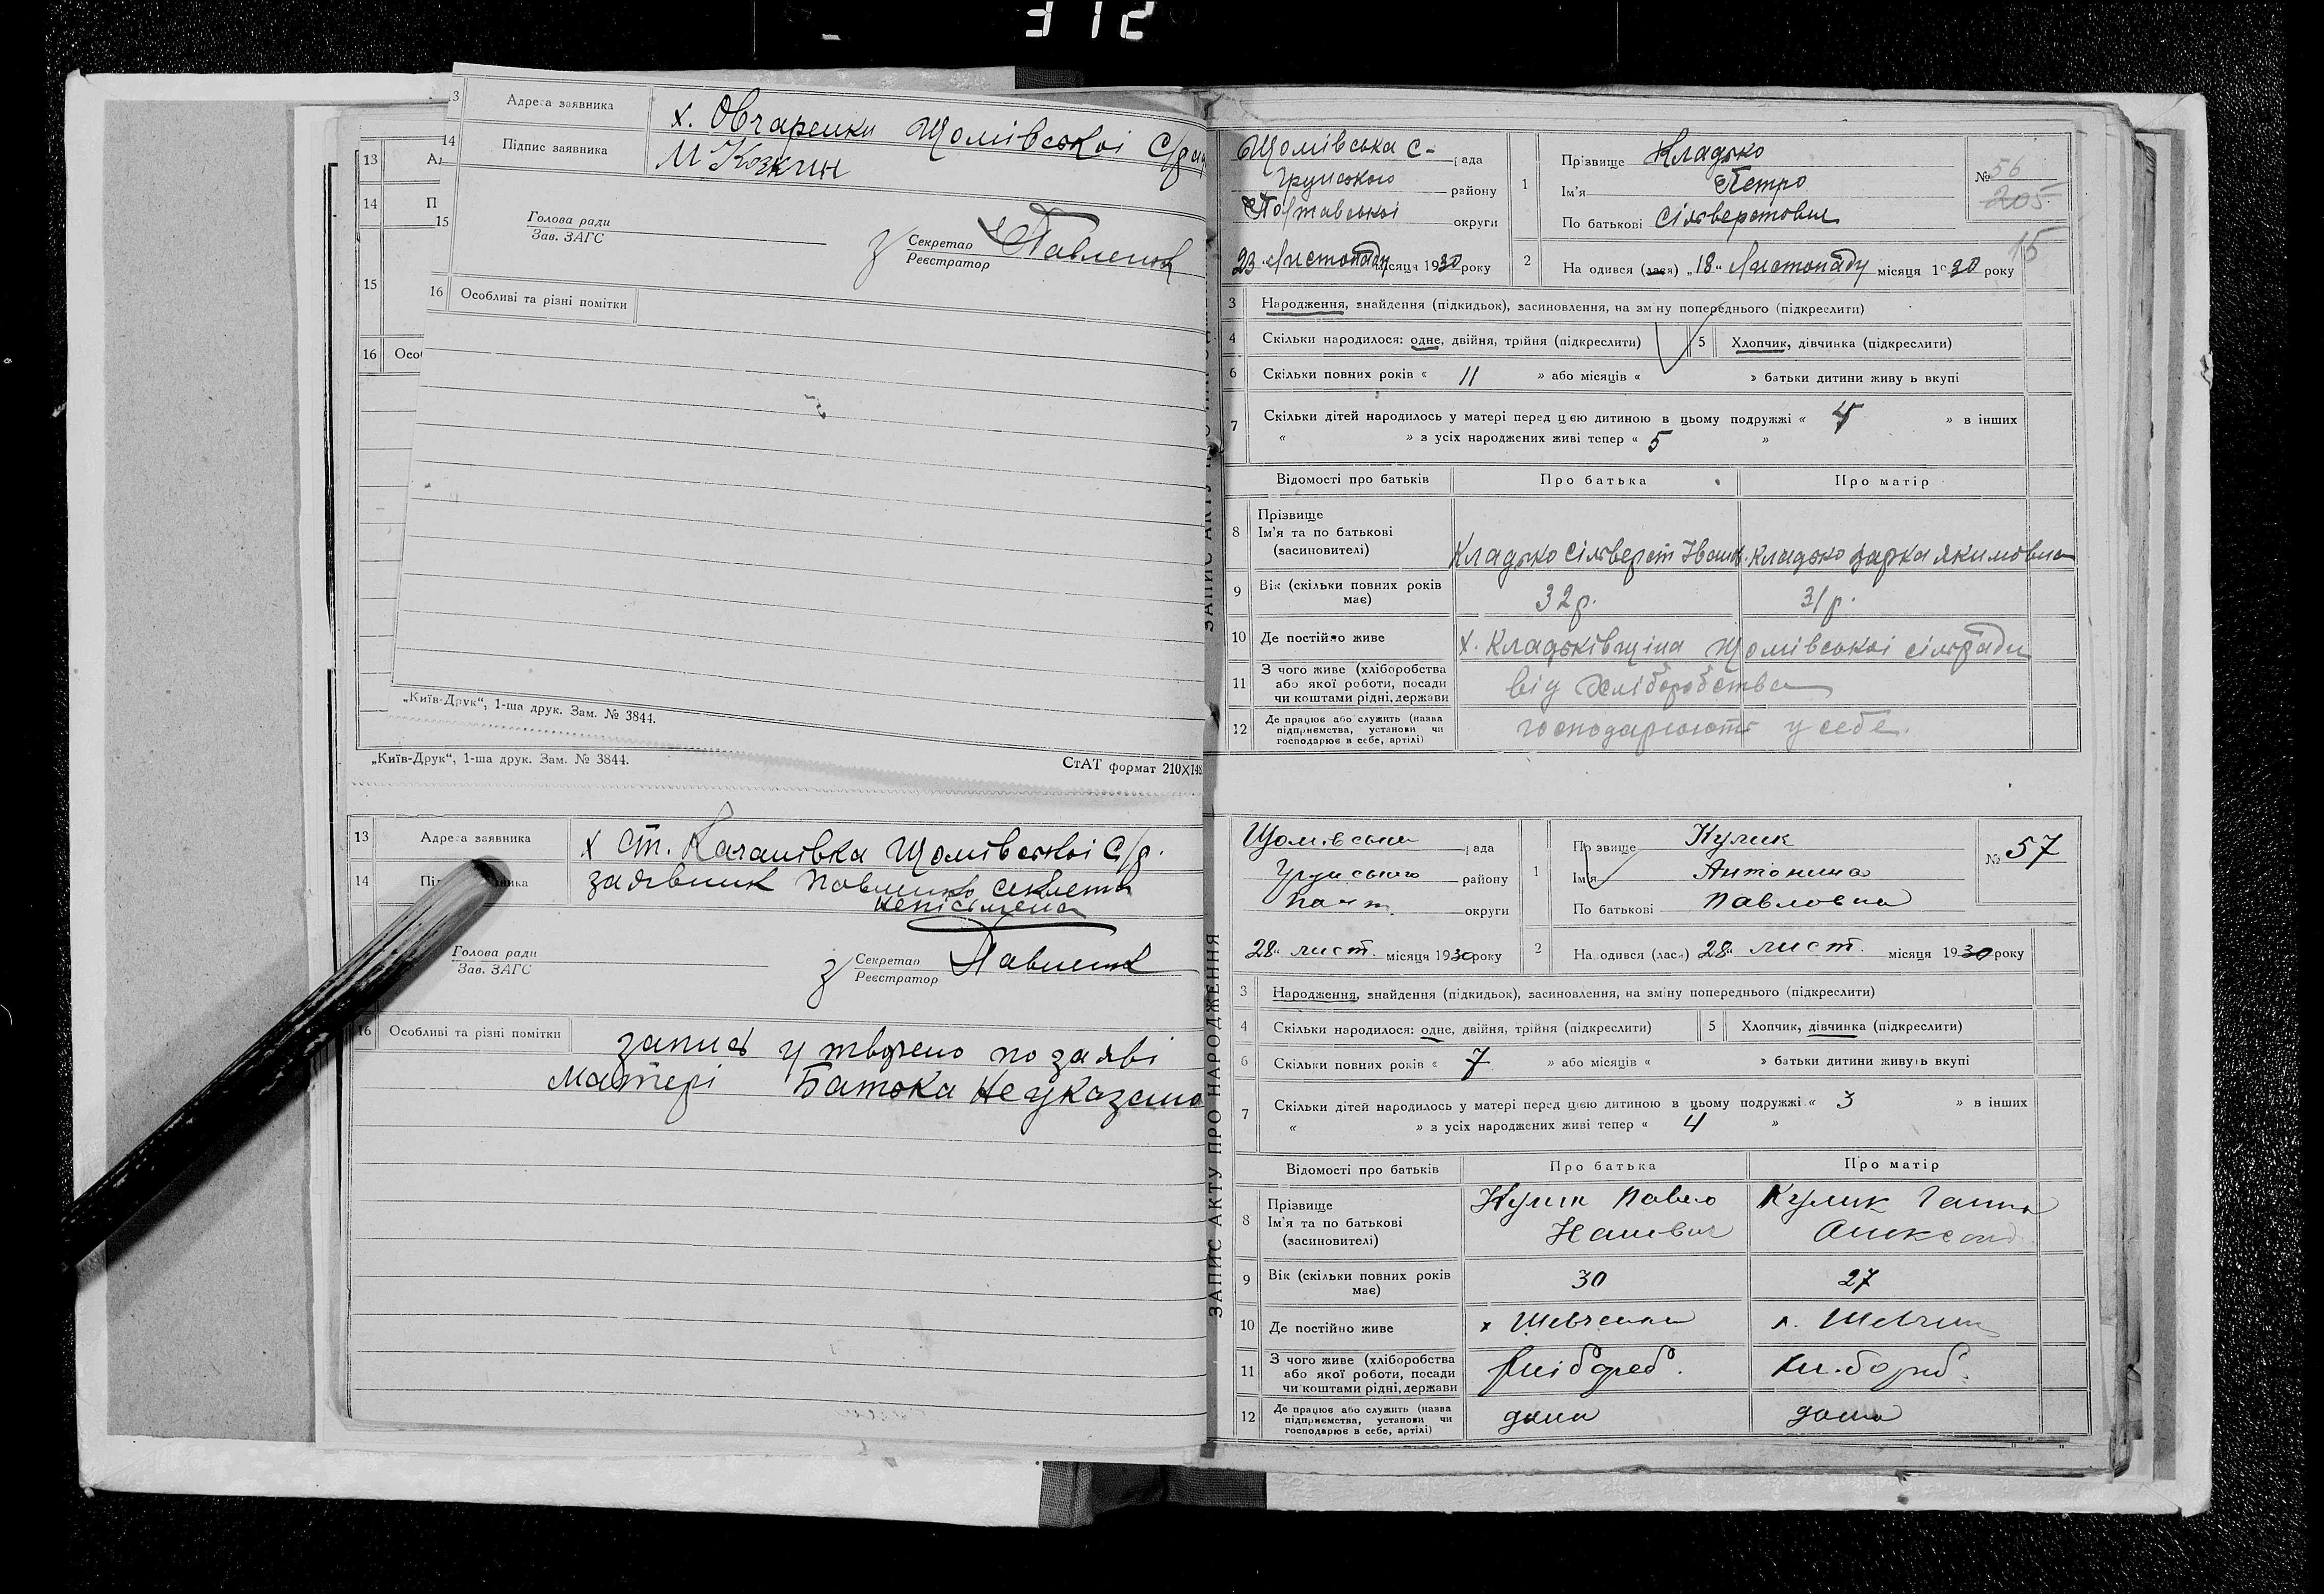 312
13 Адреса заявника х. Овчаренки Щомівської С/рад
14 Підпис заявника М Козкин
15
Голова ради
Зав. ЗАГС
з Секретар
Реєстратор Павленко
16 Особливі та різні помітки
„Київ-Друк“, 1-ша друк. Зам. № 3844.
13
14 П
15
16 Осо
„Київ-Друк“, 1-ша друк. Зам. № 3844. СтАТ формат 210×148
13 Адреса заявника х Ст. Качанівка Щомівської С/р.
14 заявник
неписьмена
Голова ради
Зав. ЗАГС
з Секретар
Реєстратор Павленко
16 Особливі та різні помітки запис утворено по заяві
матері Батька не указано
ЗАПИС АКТУ ПРО НАРОДЖЕННЯ
Щомівська с- рада
Грунського району
Полтавської округи
23 Листопаду місяця 1930 року
1 Прізвище Кладько
Ім'я Петро
По батькові Сільверстович
№ 56
205
15
2 Народився (лася) „18“ Листопаду місяця 1930 року
3 Народження, знайдення (підкидьок), засиновлення, на зміну попереднього (підкреслити)
4 Скільки народилося: одне, двійня, трійня (підкреслити) 5 Хлопчик, дівчинка (підкреслити)
6 Скільки повних років « 11 » або місяців « » батьки дитини живуть вкупі
7 Скільки дітей народилось у матері перед цією дитиною в цьому подружжі « 4 » в інших
« » з усіх народжених живі тепер « 5 »
Відомості про батьків Про батька Про матір
8 Прізвище
Ім'я та по батькові
(засиновителі) Кладько Сільверст Іванов. Кладько Варка Якимовна
9 Вік (скільки повних років має) 32 р. 31 р.
10 Де постійно живе х. Кладьківщина Щомівської сільради
11 З чого живе (хліборобства
або якої роботи, посади
чи коштами рідні, держави від хліборобства
12 Де працює або служить (назва
підприємства, установи чи
господарює в себе, артілі) господарюють у себе.
ЗАПИС АКТУ ПРО НАРОДЖЕННЯ
Щомівська рада
Грунського району
Полт. округи
28 лист. місяця 1930 року
1 Прізвище Кулик
Ім'я Антонина
По батькові Павловна
№ 57
2 Народився (лася) 28“ лист. місяця 1930 року
3 Народження, знайдення (підкидьок), засиновлення, на зміну попереднього (підкреслити)
4 Скільки народилося: одне, двійня, трійня (підкреслити) 5 Хлопчик, дівчинка (підкреслити)
6 Скільки повних років « 7 » або місяців « » батьки дитини живуть вкупі
7 Скільки дітей народилось у матері перед цією дитиною в цьому подружжі « 3 » в інших
« » з усіх народжених живі тепер « 4 »
Відомості про батьків Про батька Про матір
8 Прізвище
Ім'я та по батькові
(засиновителі) Кулик Павло Кулик Ганна
Іванович Олександ
9 Вік (скільки повних років має) 30 27
10 Де постійно живе х Шевченки х. Шевченки
11 З чого живе (хліборобства
або якої роботи, посади
чи коштами рідні, держави хлібороб. хлібороб.
12 Де працює або служить (назва
підприємства, установи чи
господарює в себе, артілі) дома дома